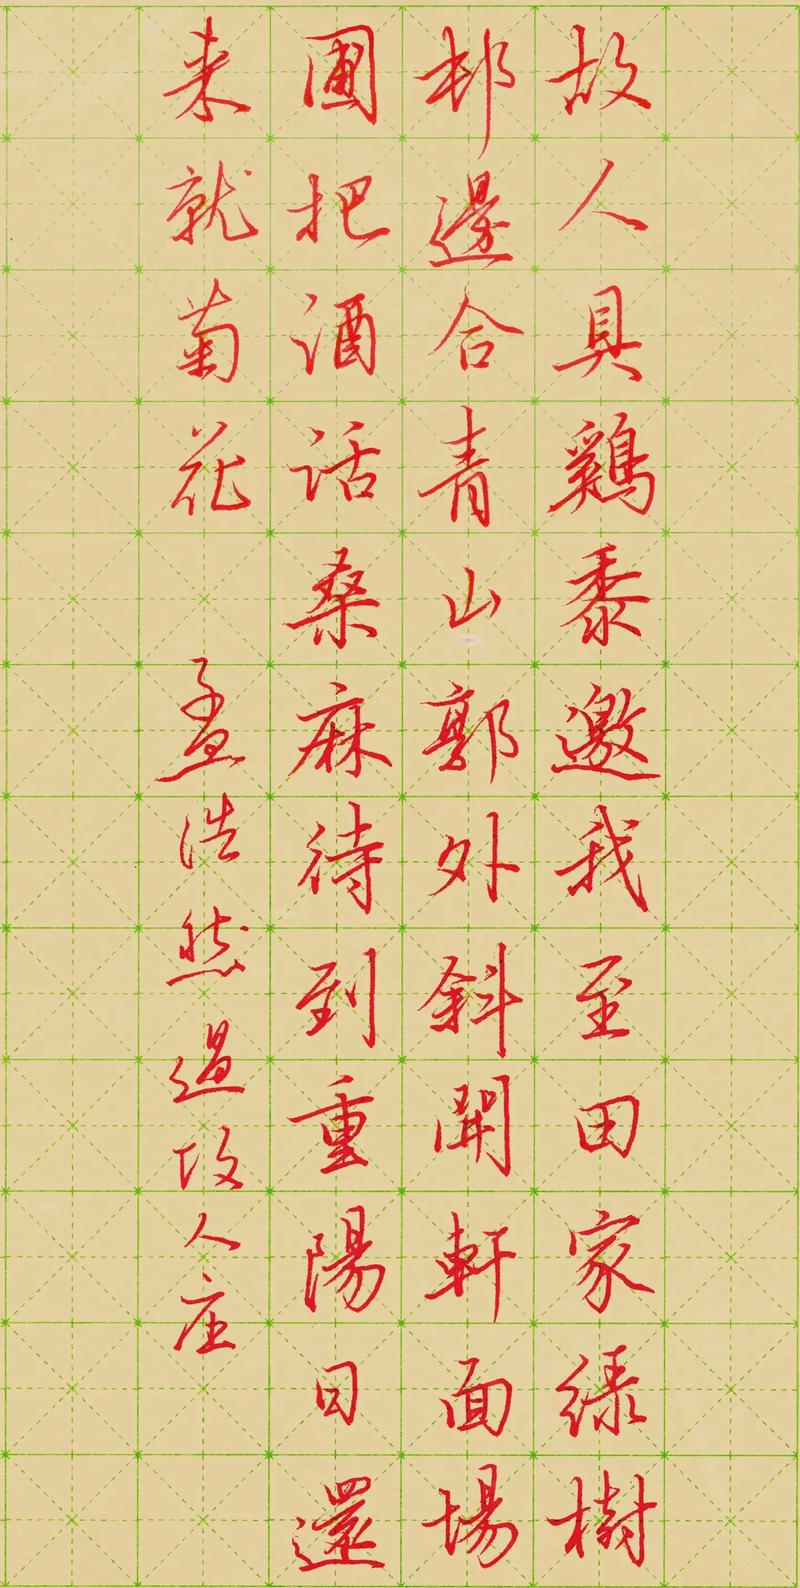 故人具鷄黍邀我至田家绿樹
邨邊合青山郭外斜開軒面場
圃把酒话桑麻待到重陽日還
来就菊花 孟浩然過故人庄